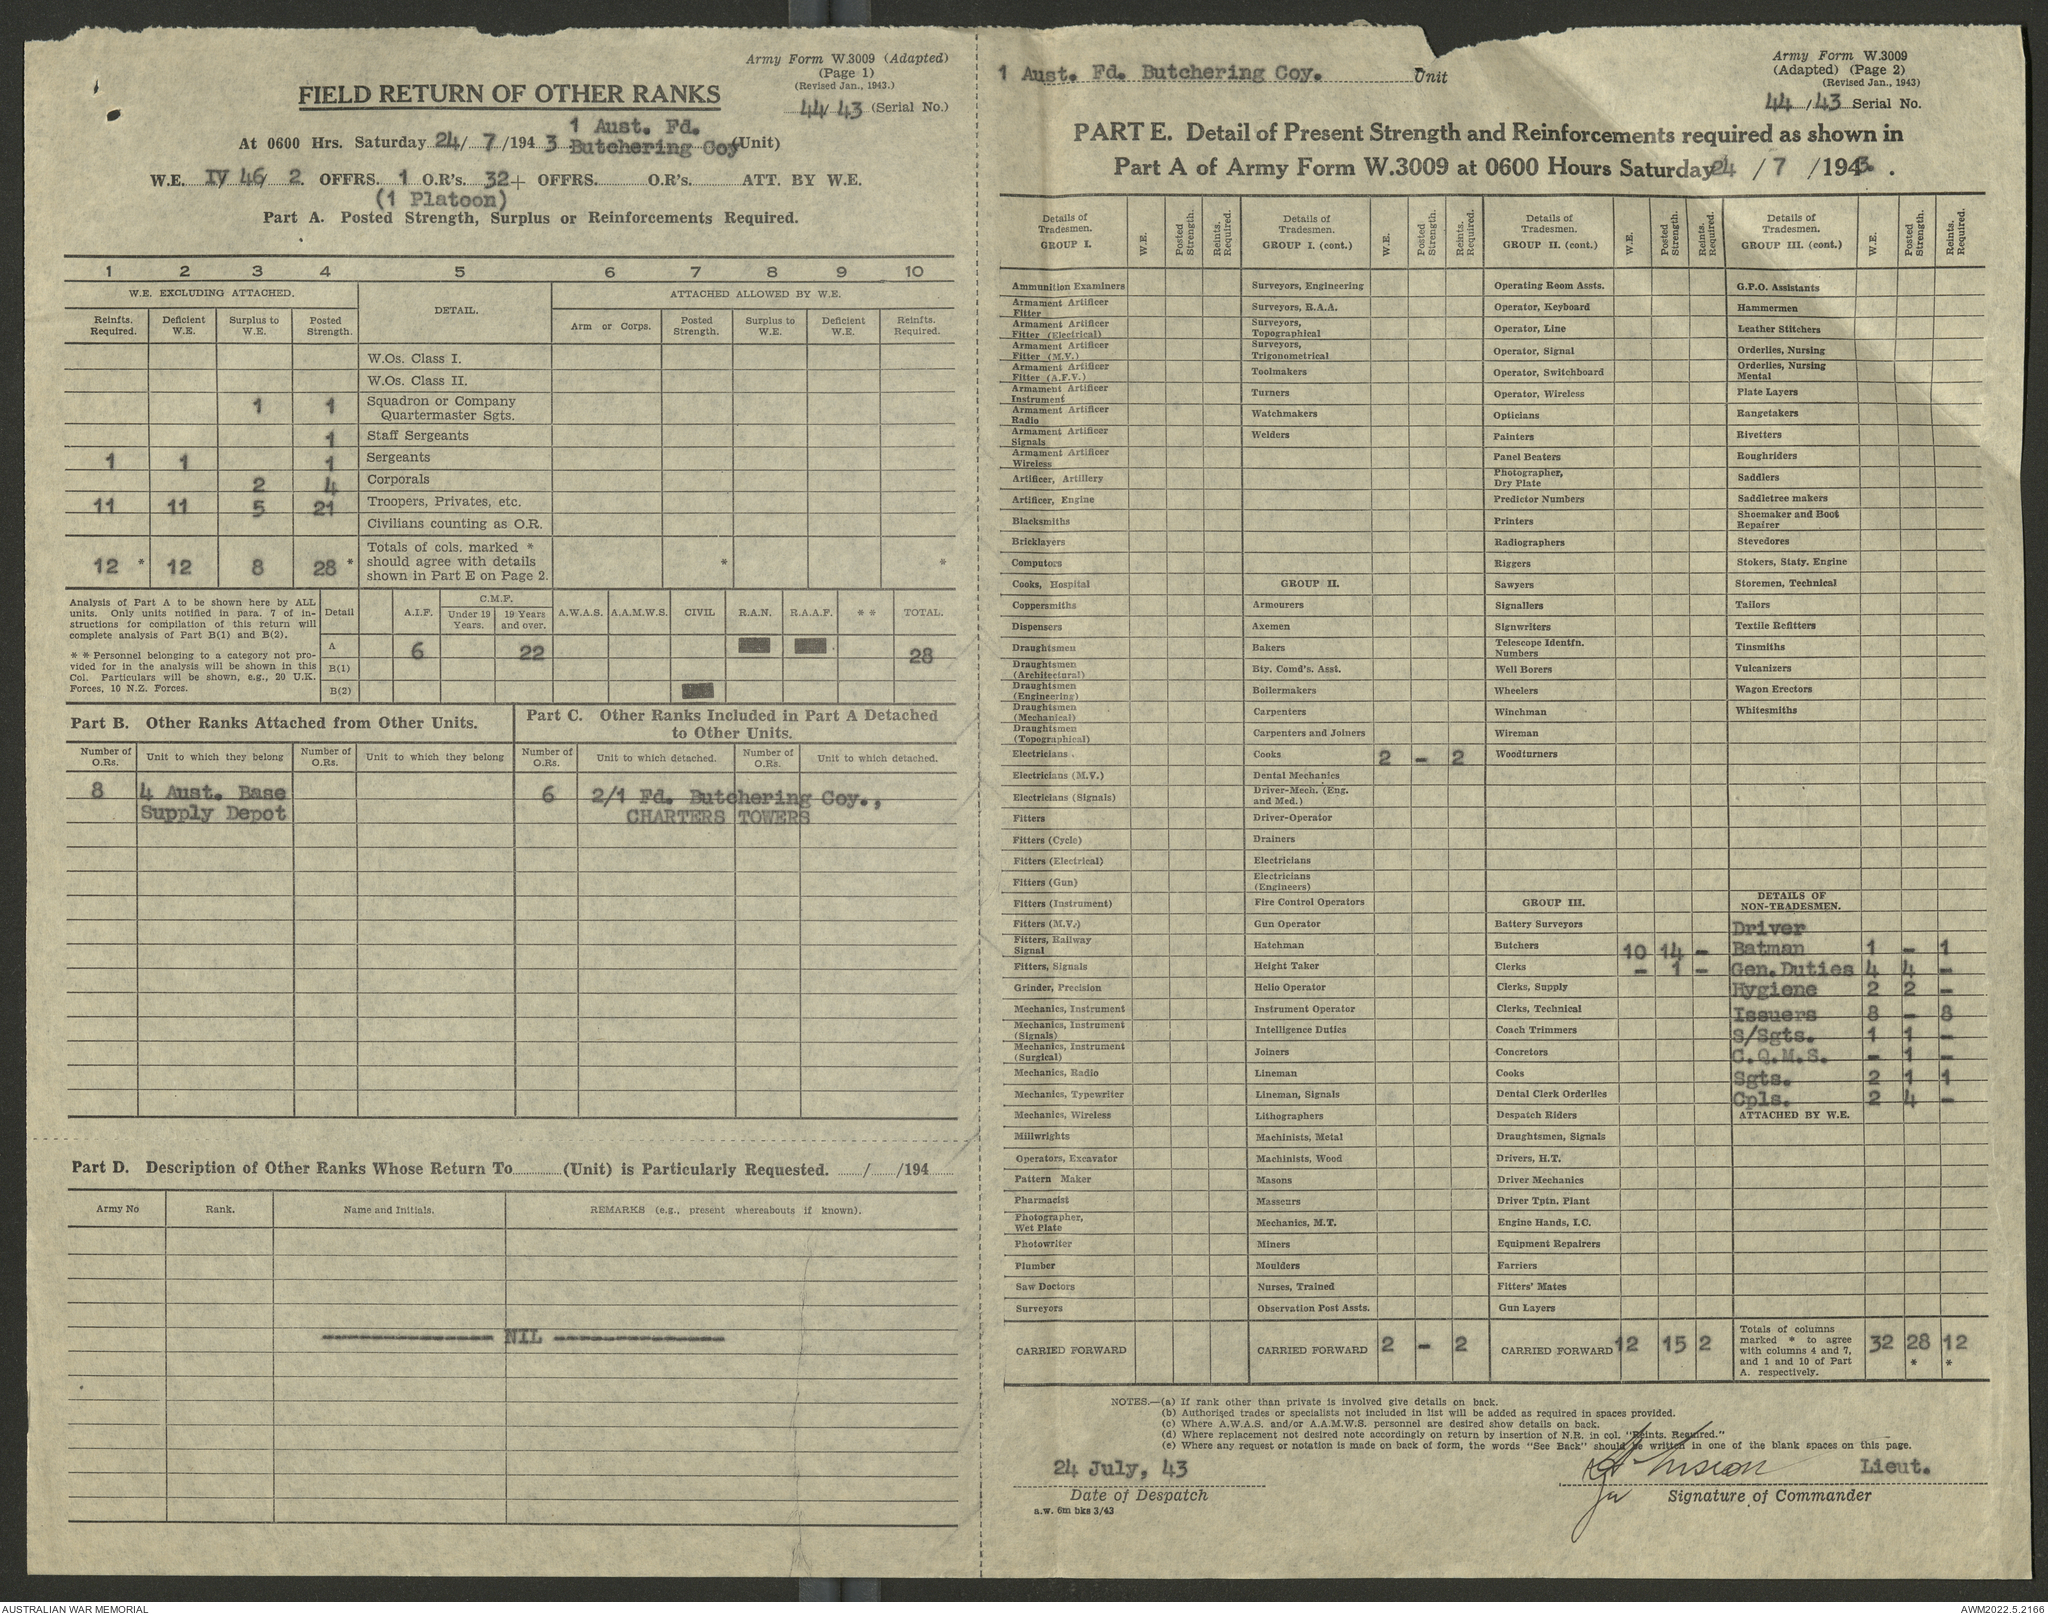 Army Form W.3009 (Adapted)
(Page 1)
(Revised Jan., 1943.)
FIELD RETURN OF OTHER RANKS
44/43 (Serial No.)
At 0600 Hrs. Saturday 24/7/1943 1 Aust. Fd. Butchering Coy (Unit)
W.E. IV 46/ 2. OFFRS. 1 O.R's. 32+ OFFRS. O.R's. ATT. BY W.E.
(1 Platoon)
Part A. Posted Strength, Surplus or Reinforcements Required.
1 2 3 4 5 6 7 8 9 10
W.E. EXCLUDING ATTACHED. DETAIL. ATTACHED ALLOWED BY W.E.
Reinfts. Required. Deficient W.E. Surplus to W.E. Posted Strength. Arm or Corps. Posted Strength. Surplus to W.E. Deficient W.E. Reinfts. Required.
W.Os. Class I.
W.Os. Class II.
1 1 Squadron or Company Quartermaster Sgts.
1 Staff Sergeants
1 1 1 Sergeants
2 4 Corporals
11 11 5 21 Troopers, Privates, etc.
Civilians counting as O.R.
12 * 12 8 28 * Totals of cols. marked * should agree with details shown in Part E on Page 2. * *
Analysis of Part A to be shown here by ALL units. Only units notified in para. 7 of instructions for compilation of this return will complete analysis of Part B(1) and B(2).
* * Personnel belonging to a category not provided for in the analysis will be shown in this Col. Particulars will be shown, e.g., 20 U.K. Forces, 10 N.Z. Forces.
Detail A.I.F. C.M.F. Under 19 Years. 19 Years and over. A.W.A.S. A.A.M.W.S. CIVIL R.A.N. R.A.A.F. * * TOTAL.
A 6 22 28
B(1)
B(2)
Part B. Other Ranks Attached from Other Units.
Number of O.Rs. Unit to which they belong Number of O.Rs. Unit to which they belong
8 4 Aust. Base
Supply Depot
Part C. Other Ranks Included in Part A Detached to Other Units.
Number of O.Rs. Unit to which detached. Number of O.Rs. Unit to which detached.
6 2/1 Fd. Butchering Coy.,
CHARTERS TOWERS
Part D. Description of Other Ranks Whose Return To (Unit) is Particularly Requested. / /194
Army No Rank. Name and Initials. REMARKS (e.g., present whereabouts if known).
NIL
1 Aust. Fd. Butchering Coy. Unit
Army Form W.3009
(Adapted) (Page 2)
(Revised Jan., 1943)
44/43 Serial No.
PART E. Detail of Present Strength and Reinforcements required as shown in
Part A of Army Form W.3009 at 0600 Hours Saturday 24/7/1943.
Details of Tradesmen. GROUP I. W.E. Posted Strength. Reints. Required.
Ammunition Examiners
Armament Artificer Fitter
Armament Artificer Fitter (Electrical)
Armament Artificer Fitter (M.V.)
Armament Artificer Fitter (A.F.V.)
Armament Artificer Instrument
Armament Artificer Radio
Armament Artificer Signals
Armament Artificer Wireless
Artificer, Artillery
Artificer, Engine
Blacksmiths
Bricklayers
Computors
Cooks, Hospital
Coppersmiths
Dispensers
Draughtsmen
Draughtsmen (Architectural)
Draughtsmen (Engineering)
Draughtsmen (Mechanical)
Draughtsmen (Topographical)
Electricians.
Electricians (M.V.)
Electricians (Signals)
Fitters
Fitters (Cycle)
Fitters (Electrical)
Fitters (Gun)
Fitters (Instrument)
Fitters (M.V.)
Fitters, Railway Signal
Fitters, Signals
Grinder, Precision
Mechanics, Instrument
Mechanics, Instrument (Signals)
Mechanics, Instrument (Surgical)
Mechanics, Radio
Mechanics, Typewriter
Mechanics, Wireless
Millwrights
Operators, Excavator
Pattern Maker
Pharmacist
Photographer, Wet Plate
Photowriter
Plumber
Saw Doctors
Surveyors
CARRIED FORWARD
Details of Tradesmen. GROUP I. (cont.) W.E. Posted Strength. Reints. Required.
Surveyors, Engineering
Surveyors, R.A.A.
Surveyors, Topographical
Surveyors, Trigonometrical
Toolmakers
Turners
Watchmakers
Welders
GROUP II.
Armourers
Axemen
Bakers
Bty. Comd's. Asst.
Boilermakers
Carpenters
Carpenters and Joiners
Cooks 2 - 2
Dental Mechanics
Driver-Mech. (Eng. and Med.)
Driver-Operator
Drainers
Electricians
Electricians (Engineers)
Fire Control Operators
Gun Operator
Hatchman
Height Taker
Helio Operator
Instrument Operator
Intelligence Duties
Joiners
Lineman
Lineman, Signals
Lithographers
Machinists, Metal
Machinists, Wood
Masons
Masseurs
Mechanics, M.T.
Miners
Moulders
Nurses, Trained
Observation Post Assts.
CARRIED FORWARD 2 - 2
Details of Tradesmen. GROUP II. (cont.) W.E. Posted Strength. Reints. Required.
Operating Room Assts.
Operator, Keyboard
Operator, Line
Operator, Signal
Operator, Switchboard
Operator, Wireless
Opticians
Painters
Panel Beaters
Photographer, Dry Plate
Predictor Numbers
Printers
Radiographers
Riggers
Sawyers
Signallers
Signwriters
Telescope Identfn. Numbers
Well Borers
Wheelers
Winchman
Wireman
Woodturners
GROUP III.
Battery Surveyors
Butchers 10 14 -
Clerks - 1 -
Clerks, Supply
Clerks, Technical
Coach Trimmers
Concretors
Cooks
Dental Clerk Orderlies
Despatch Riders
Draughtsmen, Signals
Drivers, H.T.
Driver Mechanics
Driver Tptn. Plant
Engine Hands, I.C.
Equipment Repairers
Farriers
Fitters' Mates
Gun Layers
CARRIED FORWARD 12 15 2
Details of Tradesmen. GROUP III. (cont.) W.E. Posted Strength. Reints. Required.
G.P.O. Assistants
Hammermen
Leather Stitchers
Orderlies, Nursing
Orderlies, Nursing Mental
Plate Layers
Rangetakers
Rivetters
Roughriders
Saddlers
Saddletree makers
Shoemaker and Boot Repairer
Stevedores
Stokers, Staty. Engine
Storemen, Technical
Tailors
Textile Refitters
Tinsmiths
Vulcanizers
Wagon Erectors
Whitesmiths
DETAILS OF NON-TRADESMEN.
Driver
Batman 1 - 1
Gen. Duties 4 4 -
Hygiene 2 2 -
Issuers 8 - 8
S/Sgts. 1 1 -
C.Q.M.S. - 1 -
Sgts. 2 1 1
Cpls. 2 4 -
ATTACHED BY W.E.
Totals of columns marked * to agree with columns 4 and 7, and 1 and 10 of Part A. respectively. 32 28 * 12 *
NOTES.—(a) If rank other than private is involved give details on back.
(b) Authorised trades or specialists not included in list will be added as required in spaces provided.
(c) Where A.W.A.S. and/or A.A.M.W.S. personnel are desired show details on back.
(d) Where replacement not desired note accordingly on return by insertion of N.R. in col. "Reints. Required."
(e) Where any request or notation is made on back of form, the words "See Back" should be written in one of the blank spaces on this page.
24 July, 43
Date of Despatch
a.w. 6m bks 3/43
Lieut.
Signature of Commander
AUSTRALIAN WAR MEMORIAL
AWM2022.5.2166